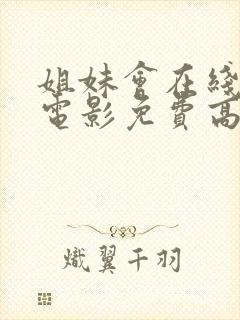 姐妹會在綫
電影免費高
熾翼千羽